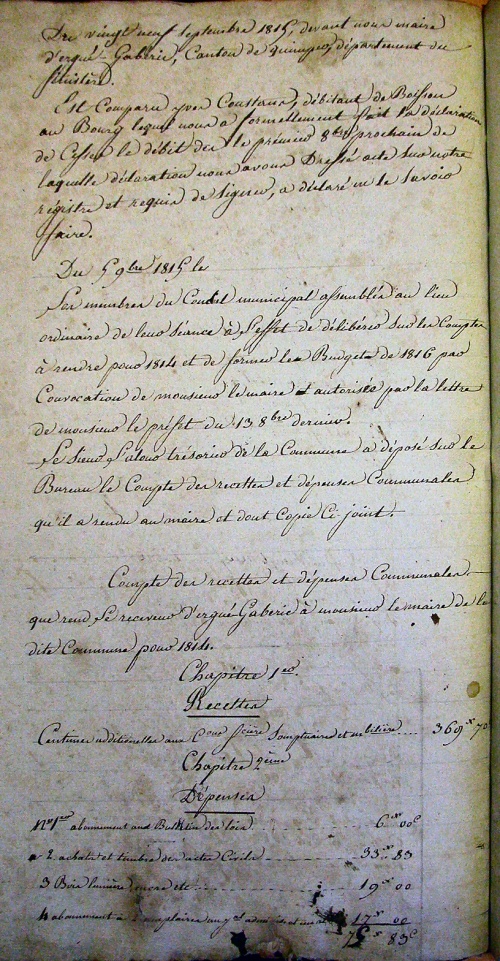 Du vingt neuf Septembre 1815, devant nous maire
d'ergué-Gaberic, Canton de quimper, département du
finistère.
Est Comparu yves Coustans, débitant de Boisson
au Bourg lequel nous a formellement fait la déclaration
de Cesser le débit dès le premier 8bre prochain de
laquelle déclaration nous avons Dressé acte sur notre
régistre et requis de signer, a déclaré ne le Savoir
faire.
Du 5 9bre 1815 le
Les membres du Conseil municipal assemblés au lieu
ordinaire de leur Séance à l'effet de délibérer sur les Comptes
à rendre pour 1814 et de former les Budgets de 1816 par
Convocation de monsieur le maire et autorisés par la lettre
de monsieur le préfet du 13 8bre dernier.
Le Sieur trésorier de la Commune a déposé sur le
Bureau le Compte des recettes et dépenses Communales
qu'il a rendu au maire et dont Copie Ci joint.
Compte des recettes et dépenses Communales
que rend le receveur d'ergué-Gaberic à monsieur le maire de la
dite Commune pour 1814.
Chapitre 1er.
Recettes
Centimes additionelles aux somptuaire et mobilière.... 369 70
Chapitre 2ème
Dépenses
n° 1er abonnement aux Bulletin des lois 6 00c
2 achats et timbre des actes Civils 33 83
3 Bois lumière encre etc 19 00
4 abonnement à 17 00
75 83c